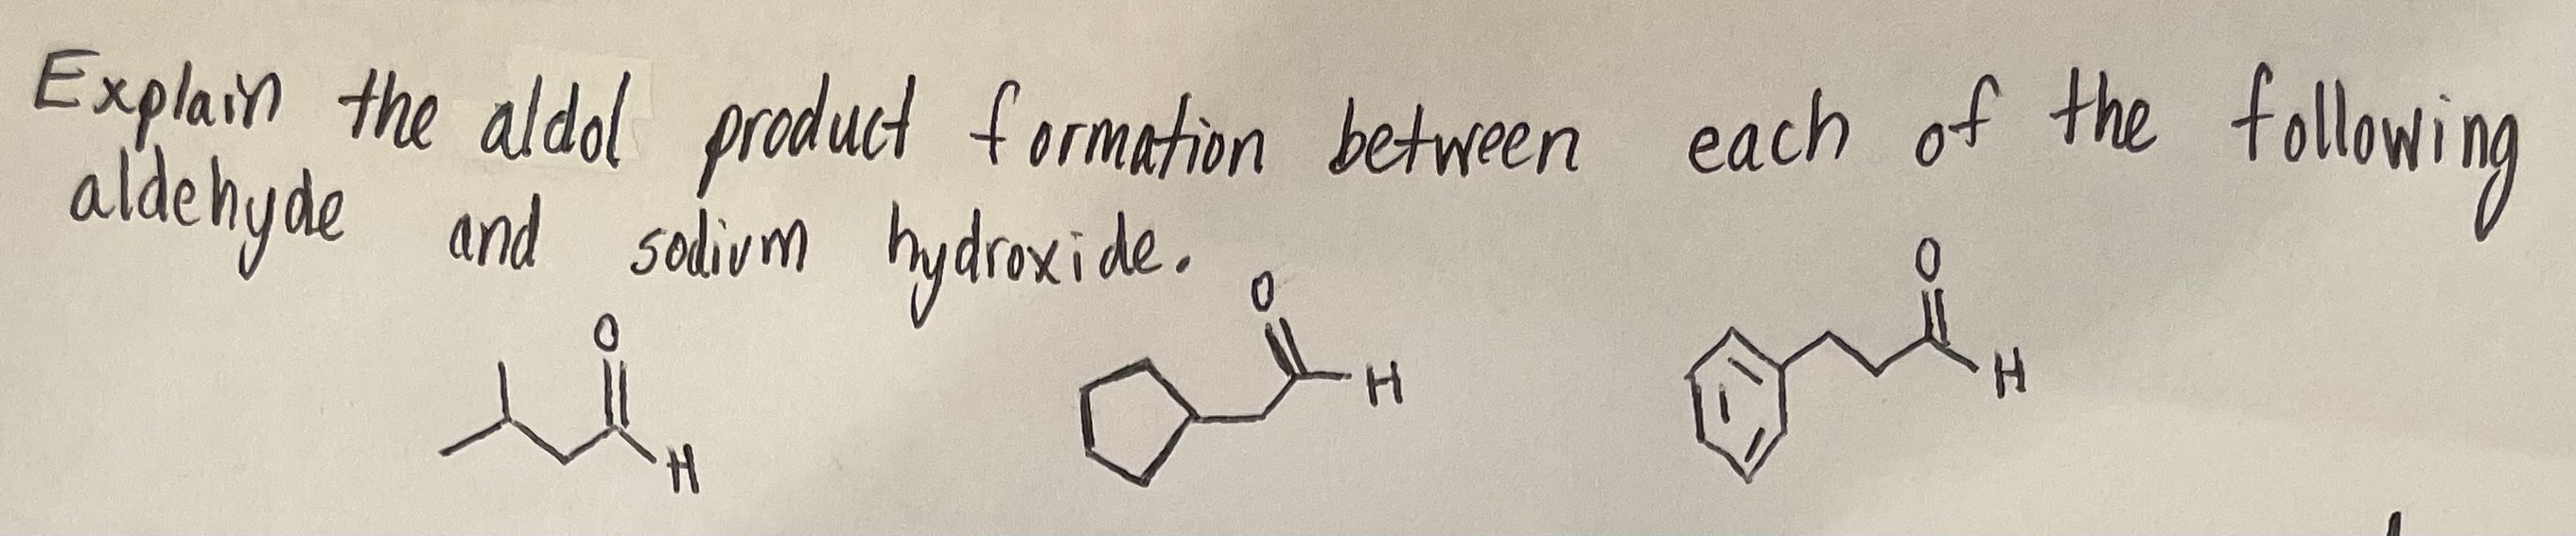 Explain the aldol product formation between each of the following
aldehyde and sodium hydroxide.
O
O
O
H
H
H